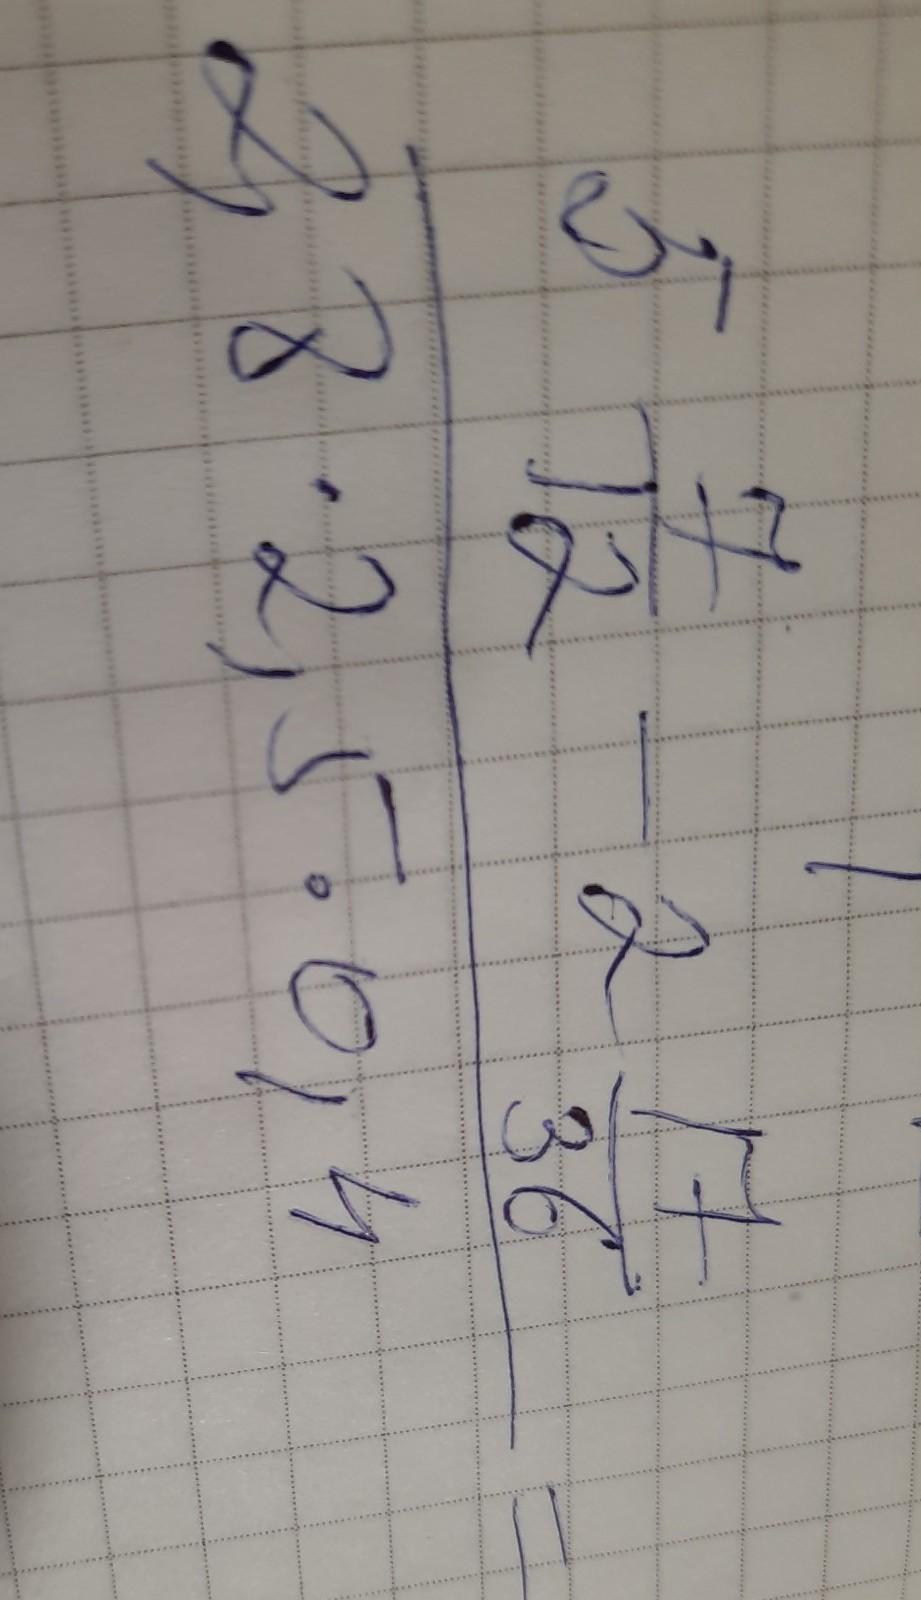 5 7/12 - 2 17/36 =
2,8 · 2,5 · 0,4